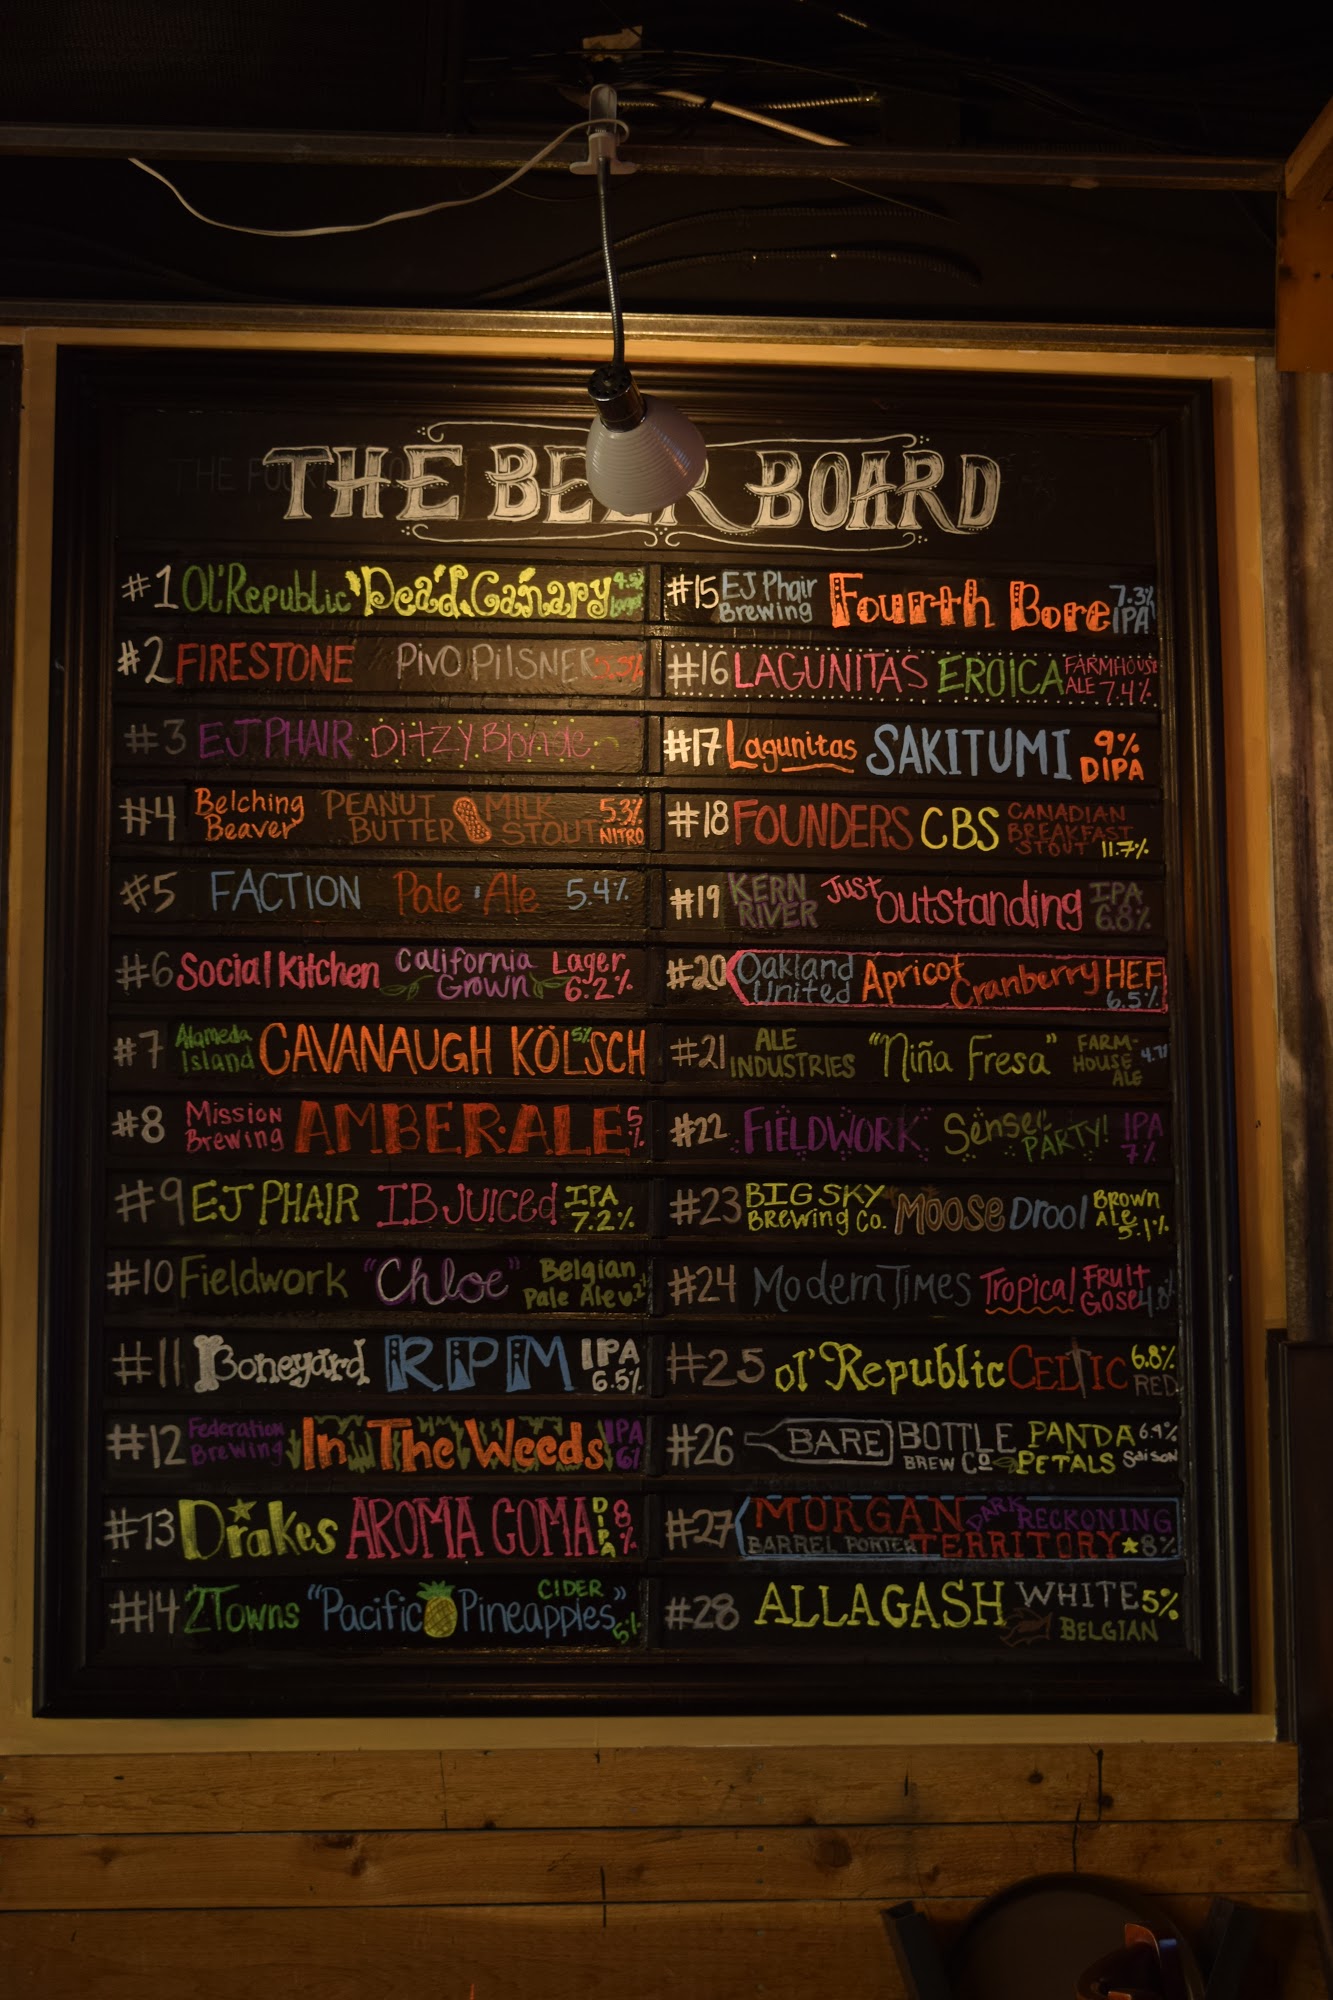 THE BEER BOARD
#1 Ol' Republic Dead Canary 4.5% Lager
#2 FIRESTONE PIVO PILSNER 5.3%
#3 EJ PHAIR Ditzy Blonde
#4 Belching Beaver PEANUT BUTTER MILK STOUT 5.3% NITRO
#5 FACTION Pale Ale 5.4%
#6 Social Kitchen California Grown Lager 6.2%
#7 Alameda Island CAVANAUGH KÖLSCH 5%
#8 Mission Brewing AMBER ALE 5%
#9 EJ PHAIR IB JUICED IPA 7.2%
#10 Fieldwork "Chloe" Belgian Pale Ale
#11 Boneyard RPM IPA 6.5%
#12 Federation Brewing In The Weeds IPA 6%
#13 Drakes AROMA COMA DIPA 8%
#14 2Towns "Pacific Pineapples" CIDER 5%
#15 EJ Phair Brewing Fourth Bore 7.3% IPA
#16 LAGUNITAS EROICA FARMHOUSE ALE 7.4%
#17 Lagunitas SAKITUMI 9% DIPA
#18 FOUNDERS CBS CANADIAN BREAKFAST STOUT 11.7%
#19 KERN RIVER Just Outstanding IPA 6.8%
#20 Oakland United Apricot Cranberry HEF 6.5%
#21 ALE INDUSTRIES "Niña Fresa" FARM-HOUSE ALE
#22 FIELDWORK Sensei PARTY! IPA 7%
#23 BIG SKY BREWING CO. MOOSE Drool BROWN ALE 5.1%
#24 Modern Times Tropical FRUIT GOSE
#25 Ol' Republic CELTIC 6.8% RED
#26 BARE BOTTLE BREW CO PANDA PETALS 6.9% Saison
#27 MORGAN TERRITORY DARK RECKONING BARREL PORTER 8%
#28 ALLAGASH WHITE 5% BELGIAN